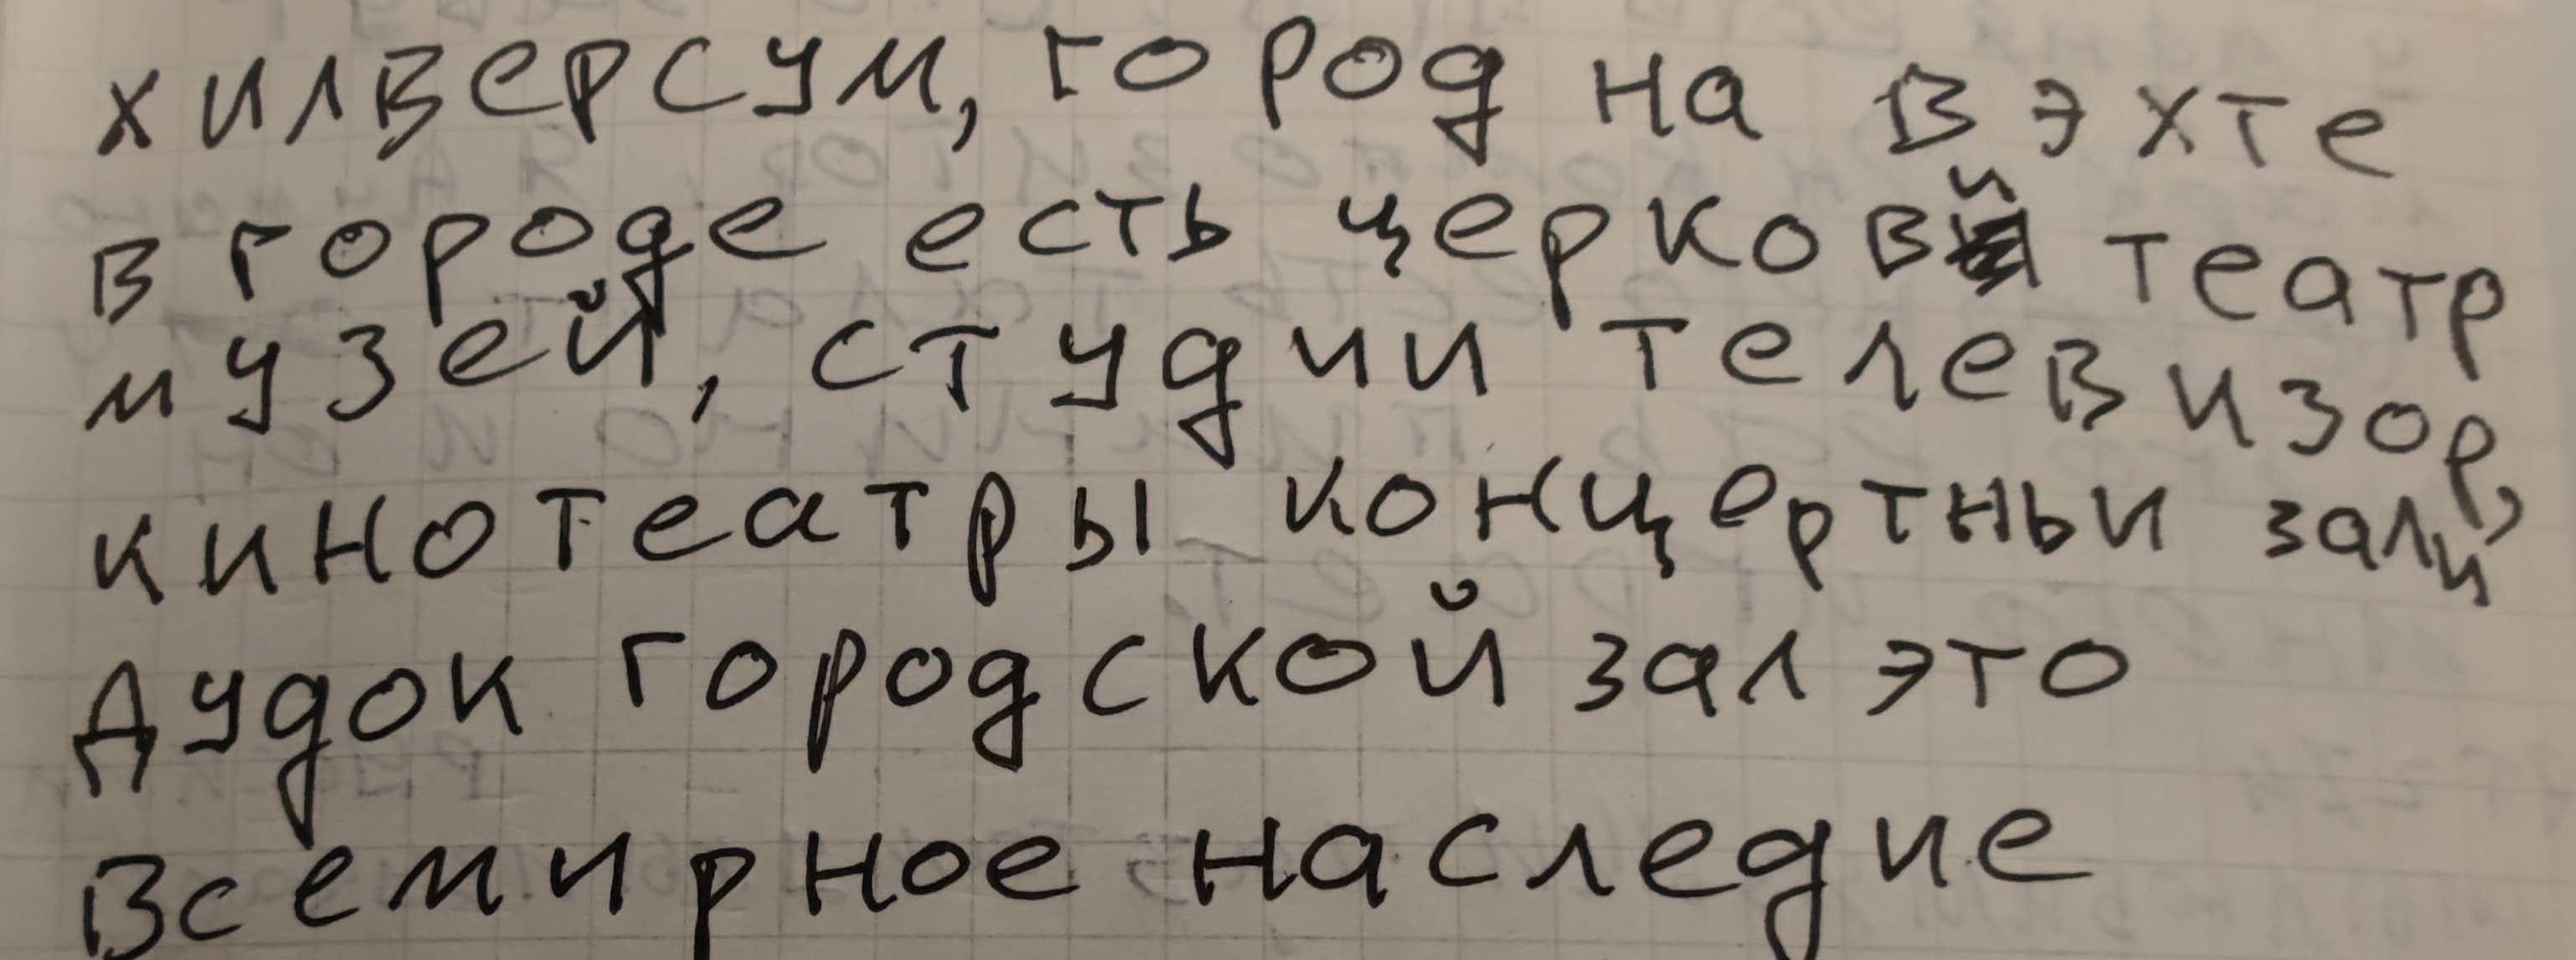 хилверсум, город на вэхте
в городе есть церкови театр
музей, студии телевизор,
кинотеатры концертньи зали
Дудок городской зал это
Всемирное наследие